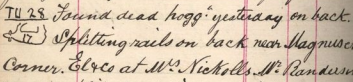 TU 28 Found dead hogg yesterday on back.
17 Splitting rails on back near Magnuses
Corner. El & co at Mrs Nickolls. Mr Randerson